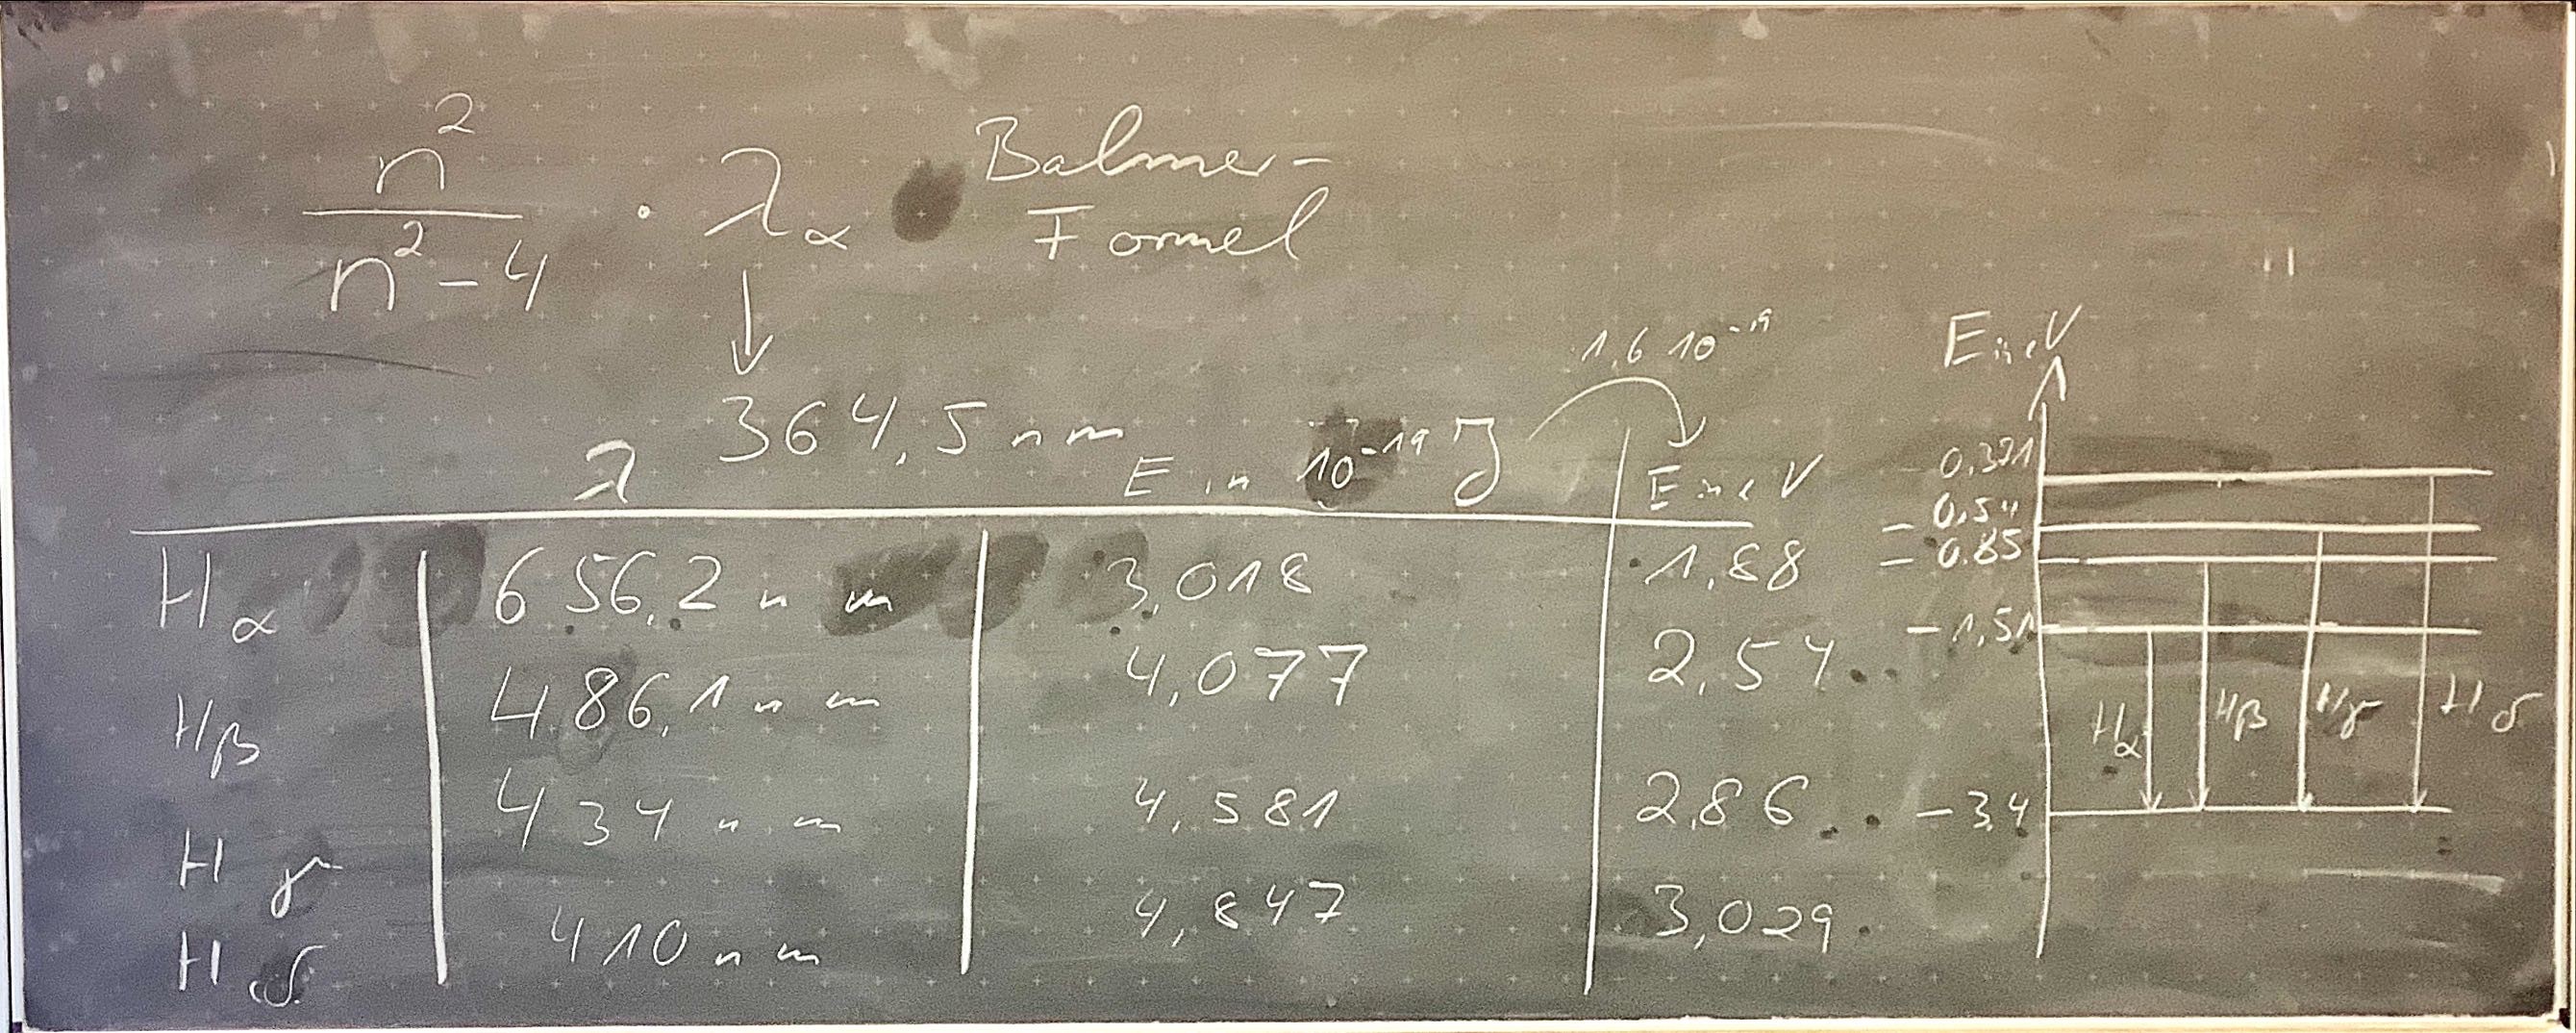 n²
n² - 4
· λα
Balmer-
Formel
↓
364,5 nm
1,6 10⁻¹⁹
λ E in 10⁻¹⁹ J E in eV
Hα 656,2 nm 3,018 1,88
Hβ 486,1 nm 4,077 2,54
Hγ 434 nm 4,581 2,86
Hδ 410 nm 4,847 3,029
E in eV
- 0,54
- 0,85
- 1,51
Hα Hβ Hγ Hδ
- 3,4